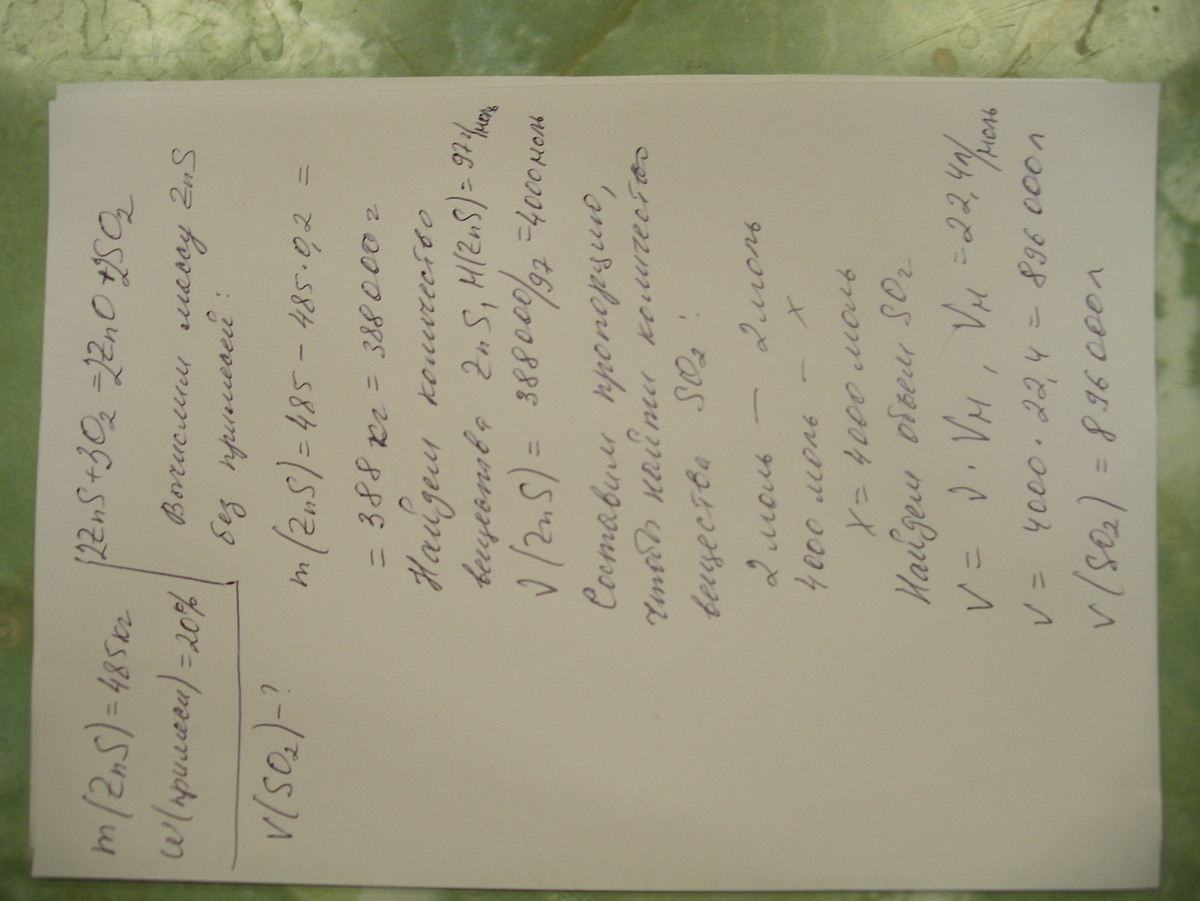 m(ZnS)=485кг
w(примеси)=20%
V(SO2)-?
2ZnS+3O2=2ZnO+2SO2
Вычислим массу ZnS
без примесей:
m(ZnS)=485-485·0,2=
=388кг=388000г
Найдем количество
вещества ZnS, M(ZnS)=97г/моль
ν(ZnS)=388000/97=4000моль
Составим пропорцию,
чтобы найти количество
вещества SO2:
2моль - 2моль
4000моль - x
x=4000моль
Найдем объем SO2
V= ν·Vм, Vм=22,4л/моль
V= 4000·22,4=896000л
V(SO2)=896000л